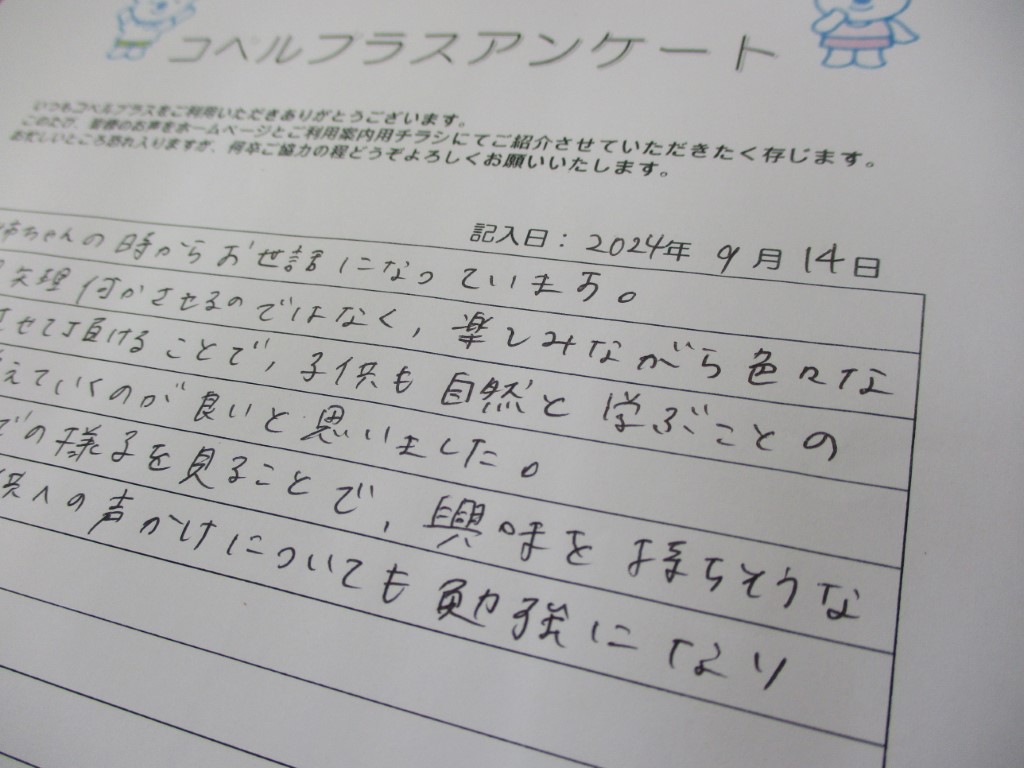 コペルプラスアンケート
いつもコペルプラスをご利用いただきありがとうございます。
このたび、皆様のお声をホームページとご利用案内用チラシにてご紹介させていただきたく存じます。
お忙しいところ恐れ入りますが、何卒ご協力の程どうぞよろしくお願いいたします。
記入日：2024年 9月 14日
姉ちゃんの時からお世話になっています。
無理何かさせるのではなく、楽しみながら色々な
させて頂けることで、子供も自然と学ぶことの
えていくのが良いと思いました。
での様子を見ることで、興味を持ちそうな
供への声かけについても勉強になり